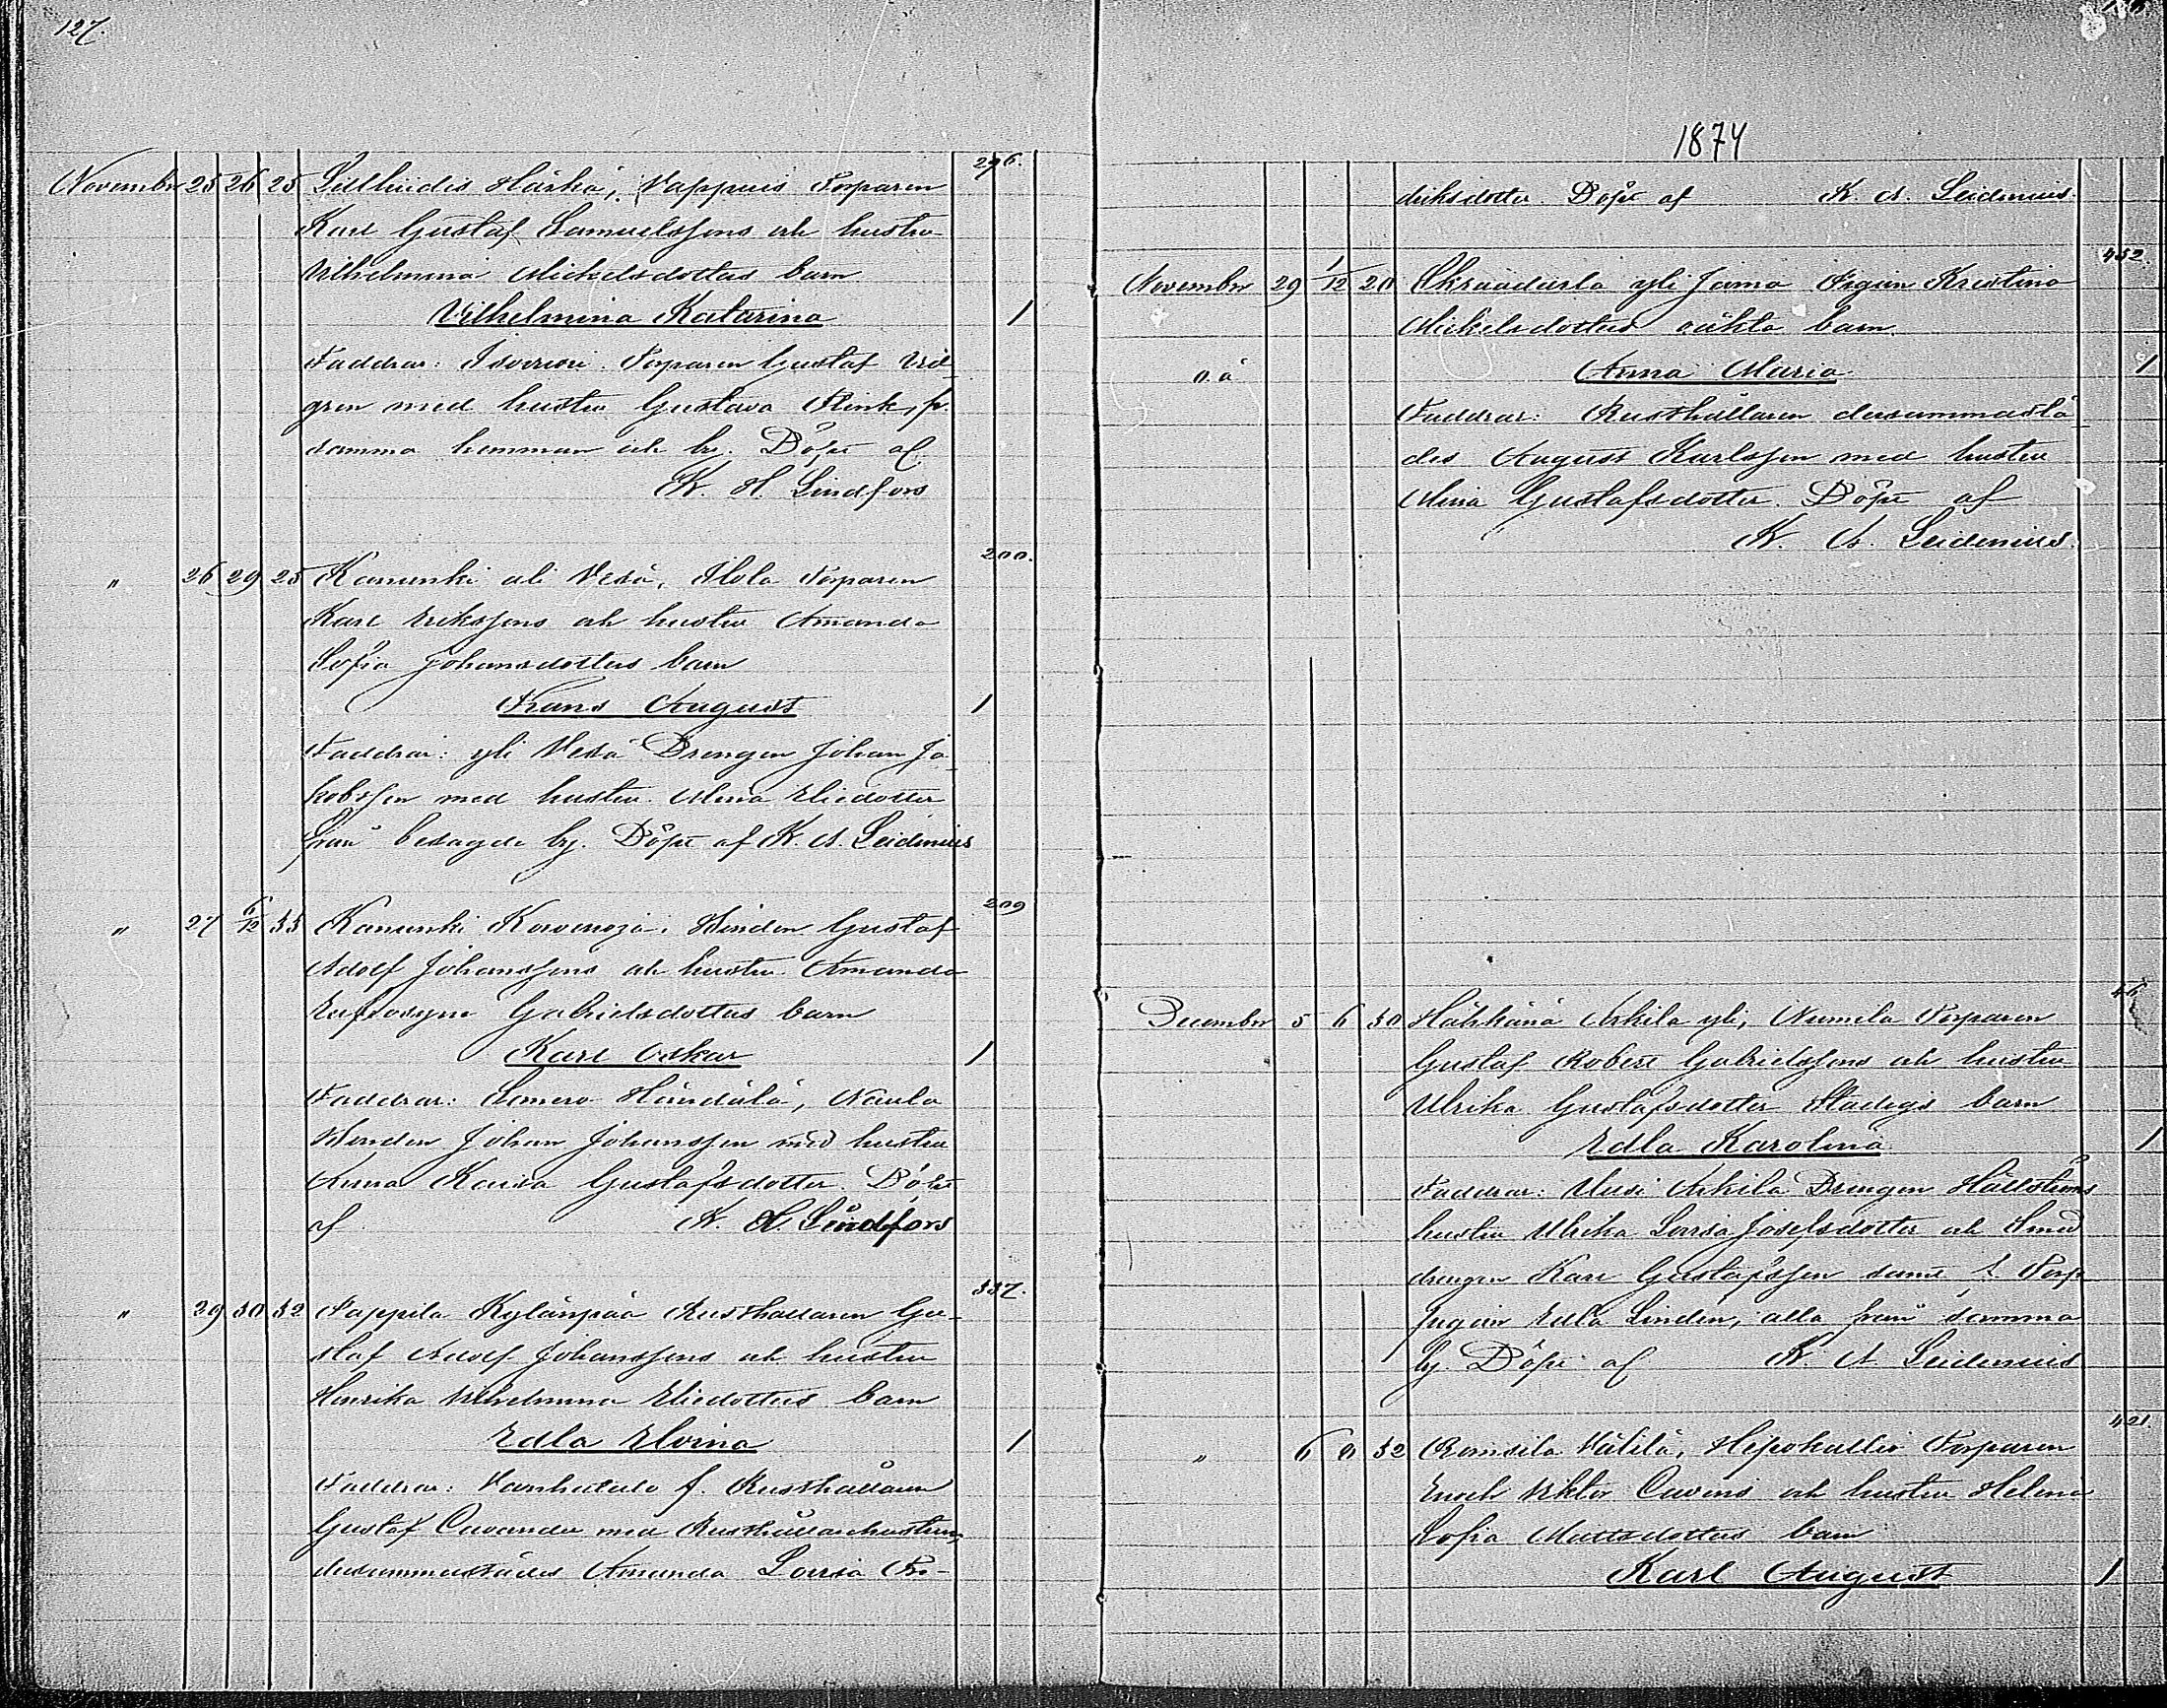 127.
296.
Novembr 25 26 25 Härkä, Vappuis Torparen
Karl Gustaf Samuelssons och hustru
Vilhelmina Mickelsdotters barn
Vilhelmina Katarina 1
Faddrar: Isoverroi Torparen Gustaf Vid-
gren med hustru Gustava Flink, fr.
samma hemman och by. Döpt af
K. H. Lindfors
200.
" 26 29 25 Kanunki ali Vesa, Ilola Torparen
Karl Erikssons och hustru Amanda
Sofia Johansdotters barn
Frans August 1
Faddrar: yli Vesa Drengen Johan Ja-
kobsson med hustru Mina Eliedotter
från besagde by. Döpt af K. A. Leidenius
209
" 27 6/12 33 Kanunki Korvenoja, Inden Gustaf
Adolf Johanssons och hustru Amanda
Eufrosyne Gabrielsdotters barn
Karl Oskar 1
Faddrar: Somero Häntälä, Naula
Inden Johan Johansson med hustru
Anna Kaisa Gustafsdotter. Döpt
af K. H. Lindfors
337.
" 29 30 32 Pappila Kylänpää Rusthållaren Gu-
staf Adolf Johanssons och hustru
Henrika Vilhelmina Eliedotters barn
Edla Elvina 1
Faddrar: Vanhatalo f. Rusthållaren
Gustaf med Rusthållarehustrun
dersammastädes Amanda Lovisa Fre-
1874
driksdotter. Döpt af K. A. Leidenius.
452
Novembr 29 1/12 20 yli Jama Pigan Kristina
Mickelsdotters oäkta barn
o. ä Anna Maria 1
Faddrar: Rusthållaren dersammastä-
des August Karlsson med hustru
Mina Gustafsdotter. Döpt af
K. A. Leidenius.
46
December 5 6 30 Häkkänä Arkila yli, Numila Torparen
Gustaf Robert Gabrielssons och hustru
Ulrika Gustafsdotter Stadigs barn
Edla Karolina 1
Faddrar: Uusi Arkila Drengen Hällströms
hustru Ulrika Lovisa Josefsdotter och Smed
drengen Karl Gustafsson samt
Pigan Edla Linden, alla från samma
by. Döpt af K. A. Leidenius
421.
" 6 9 32 Romsila Välilä, Hepokallio Torparen
Enoch Viktor och hustru Helena
Sofia Mattsdotters barn
Karl August 1